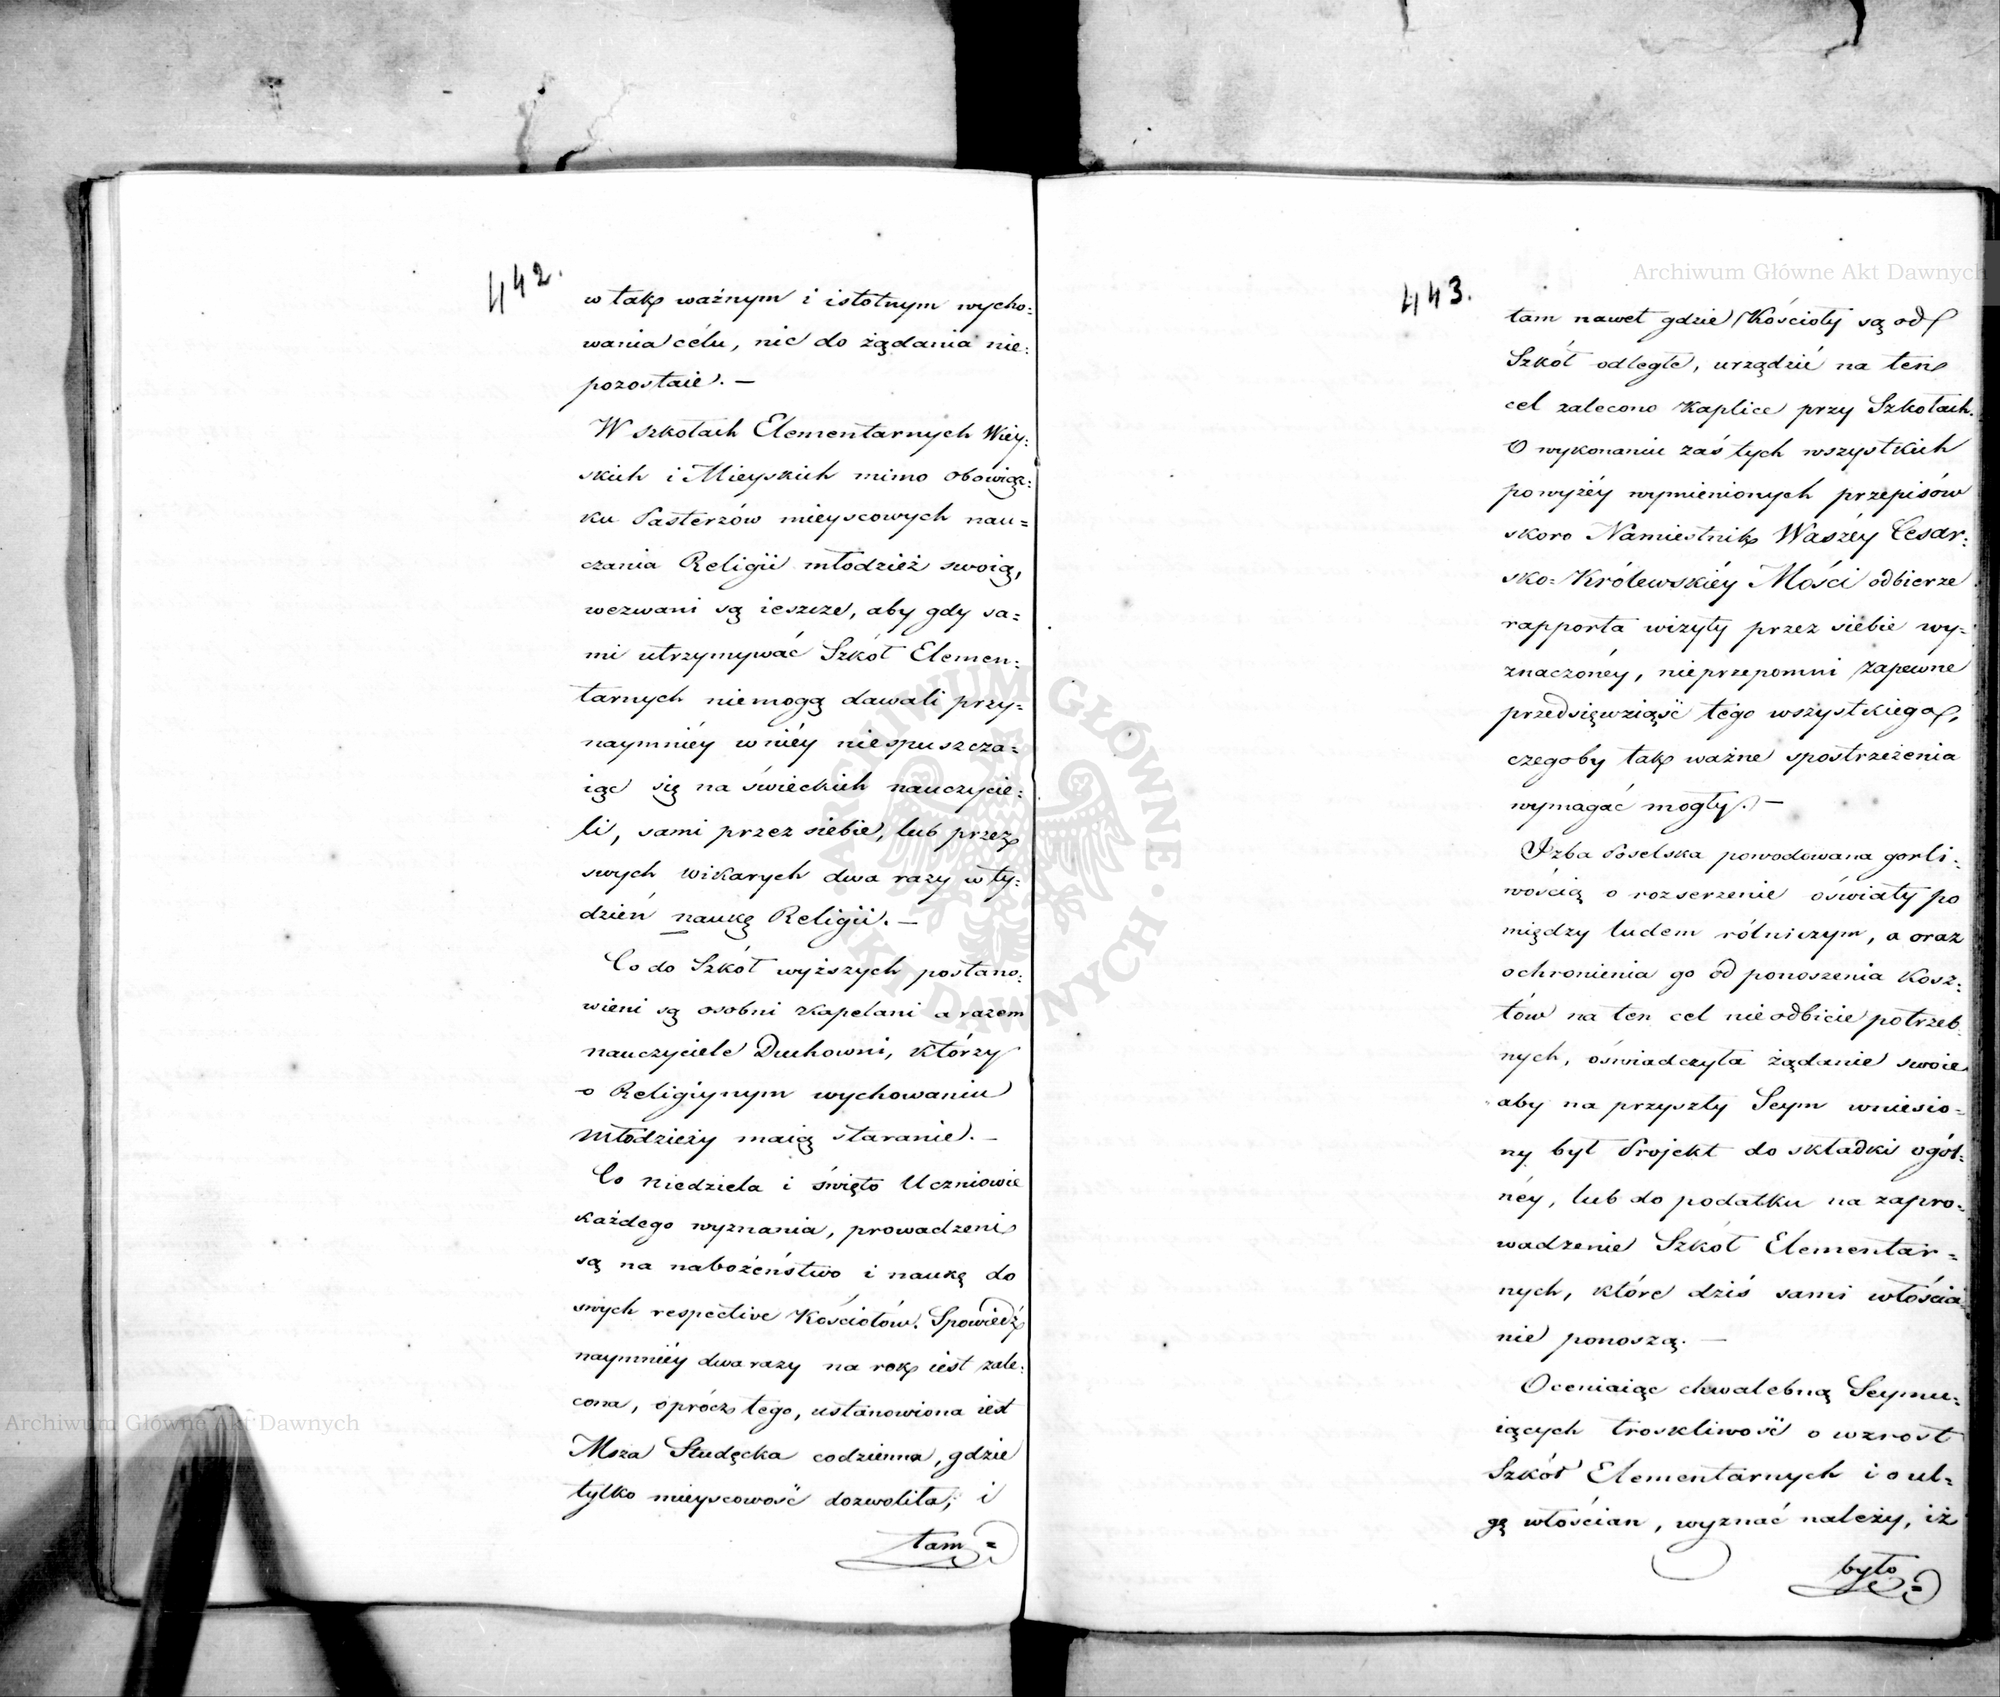 442.
w tak ważnym i istotnym wycho=
wania célu, nic do żądania nie=
pozostaie. —
W szkołach Elementarnych Wiey=
skich i Mieyskich mimo obowiąz=
ku Pasterzów mieyscowych nau=
czania Religii młodzież swoią,
wezwani są ieszcze, aby gdy sa=
mi utrzymywać Szkół Elemen=
tarnych niemogą dawali przy=
naymniéy w niéy niespuszcza=
iąc się na świeckich nauczycie=
li, sami przez siebie, lub przez
swych wikarych dwa razy w ty=
dzień naukę Religii. —
Co do Szkół wyższych postano=
wieni są osobni kapelani a razem
nauczyciele Duchowni, którzy
o Religiynym wychowaniu
młodzieży maią staranie. —
Co niedziela i święto Uczniowie
każdego wyznania, prowadzeni
są na nabożeństwo i naukę do
swych respective Kościołów. Spowiedź
naymniéy dwa razy na rok iest zale=
cona, oprócz tego, ustanowiona iest
Msza Studęcka codzienna, gdzie
tylko mieyscowość dozwoliła, i
tam =
443.
tam nawet gdzie Kościoły są od
Szkół odległe, urządzić na ten
cel zalecono Kaplice przy Szkołach.
O wykonaniu zaś tych wszystkich
powyżéy wymienionych przepisów
skoro Namiestnik Waszéy Cesar=
sko=Królewskiéy Mości odbierze
rapporta wizyty przez siebie wy=
znaczonéy, nieprzepomni zapewne
przedsięwziąść tego wszystkiego,
czegoby tak ważne spostrzeżenia
wymagać mogły. —
Izba Poselska powodowana gorli=
wością o rozserzenie oświaty po
między ludem rólniczym, a oraz
ochronienia go od ponoszenia kosz=
tów na ten cel nieodbicie potrzeb
nych, oświadczyła żądanie swoie
aby na przyszły Seym wniesio=
ny był Projekt do składki ogól=
néy, lub do podatku na zapro=
wadzenie Szkół Elementar=
nych, które dziś sami włościa=
nie ponoszą. —
Oceniaiąc chwalebną Seymu=
iących troskliwość o wzrost
Szkół Elementarnych i o ul=
gę włościan, wyznać należy, iż
było =
Archiwum Główne Akt Dawnych
Archiwum Główne Akt Dawnych
ARCHIWUM GŁÓWNE AKT DAWNYCH